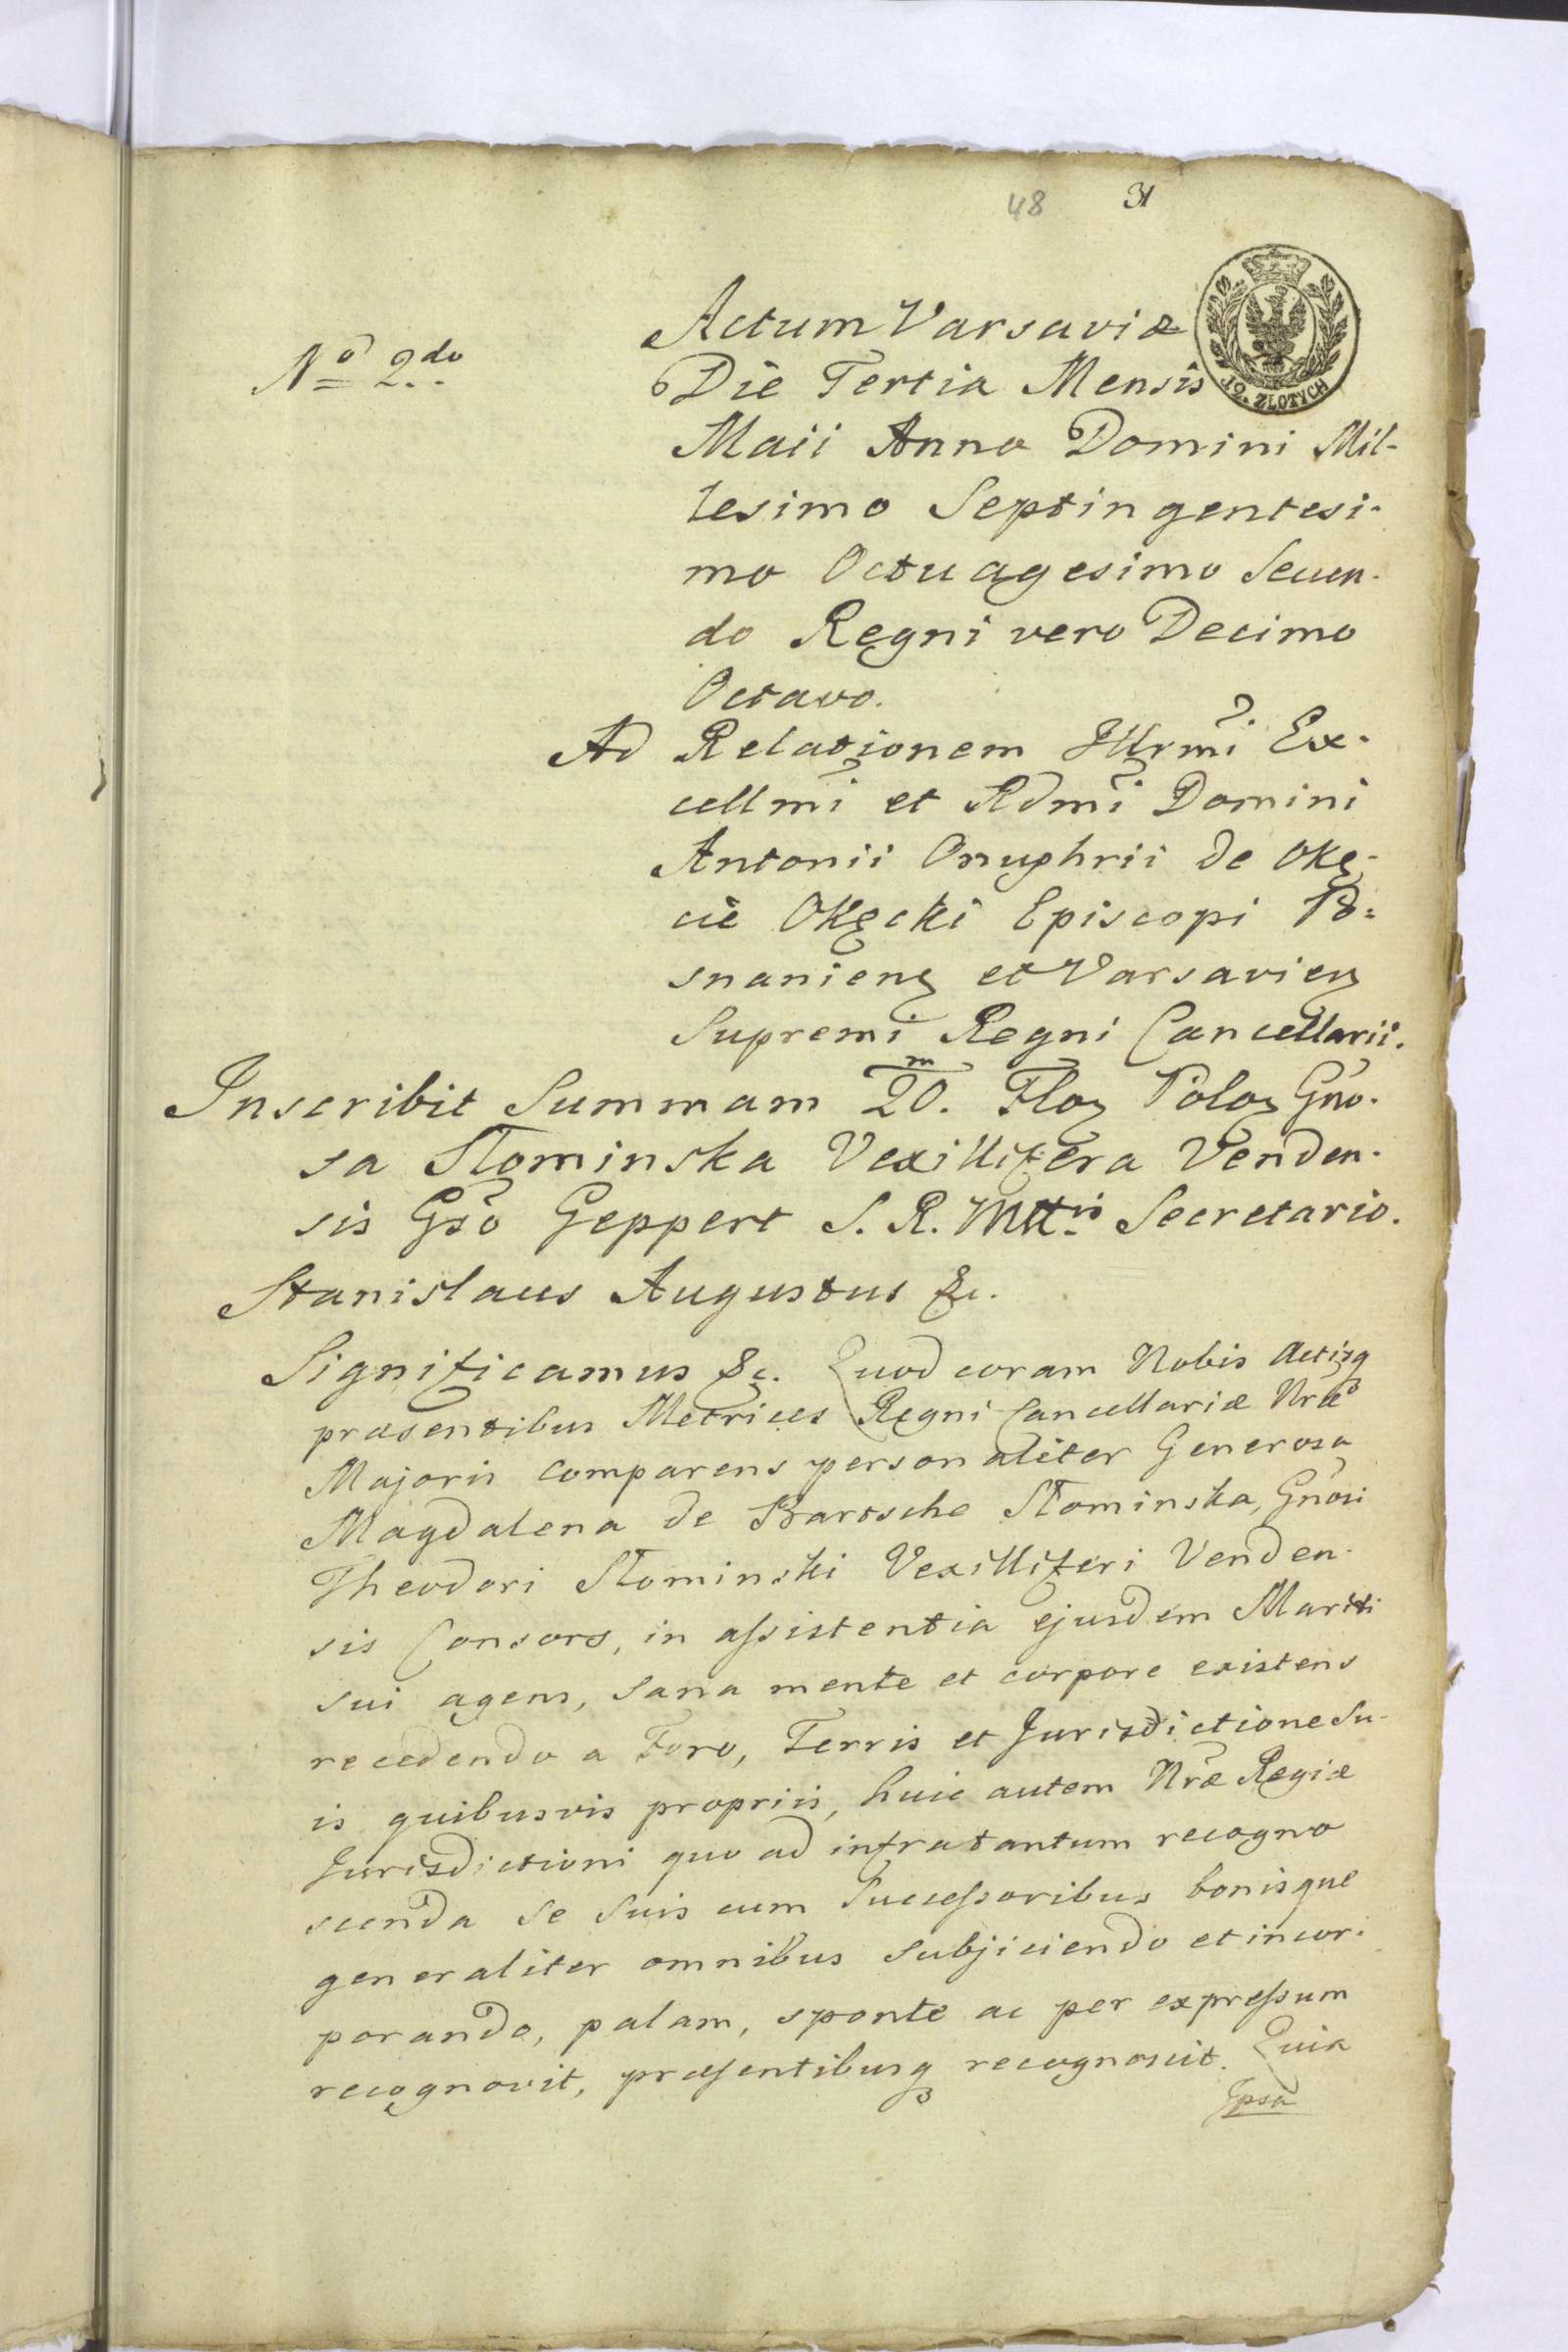 48 31
Actum Varsaviæ
12. ZŁOTYCH
No 2do
Die Tertia Mensis
Maii Anno Domini Mil-
lesimo Septingentesi-
mo Octuagesimo Secun-
do Regni vero Decimo
Octavo.
Ad Relationem Illrmi Ex-
cellmi et Rdmi Domini
Antonii Onuphrii de Okę-
cie Okęcki Episcopi Po=
snanien et Varsavien
Supremi Regni Cancellarii.
Inscribit Summam 20.m Flor Polor Gno-
sa Słominska Vexillifera Venden-
sis Gso Geppert S. R. Mttis Secretario.
Stanislaus Augustus &c.
Significamus &c. Quod coram Nobis Actisq
præsentibus Metrices Regni Cancellariæ Nræ
Majoris comparens personaliter Generosa
Magdalena de Bartsche Słominska, Gnosi
Theodori Słominski Vexilliferi Venden-
sis Consors, in assistentia ejusdem Mariti
sui agens, sana mente et corpore existens
recedendo a Foro, Terris et Jurisdictione Su-
is quibusvis propriis, huic autem Nræ Regiæ
Jurisdictioni quo ad infratantum recogno
scenda se suis cum Successoribus bonisque
generaliter omnibus subjiciendo et incor-
porando, palam, sponte ac per expressum
recognovit, præsentibusq recognoscit. Quia
Ipsa